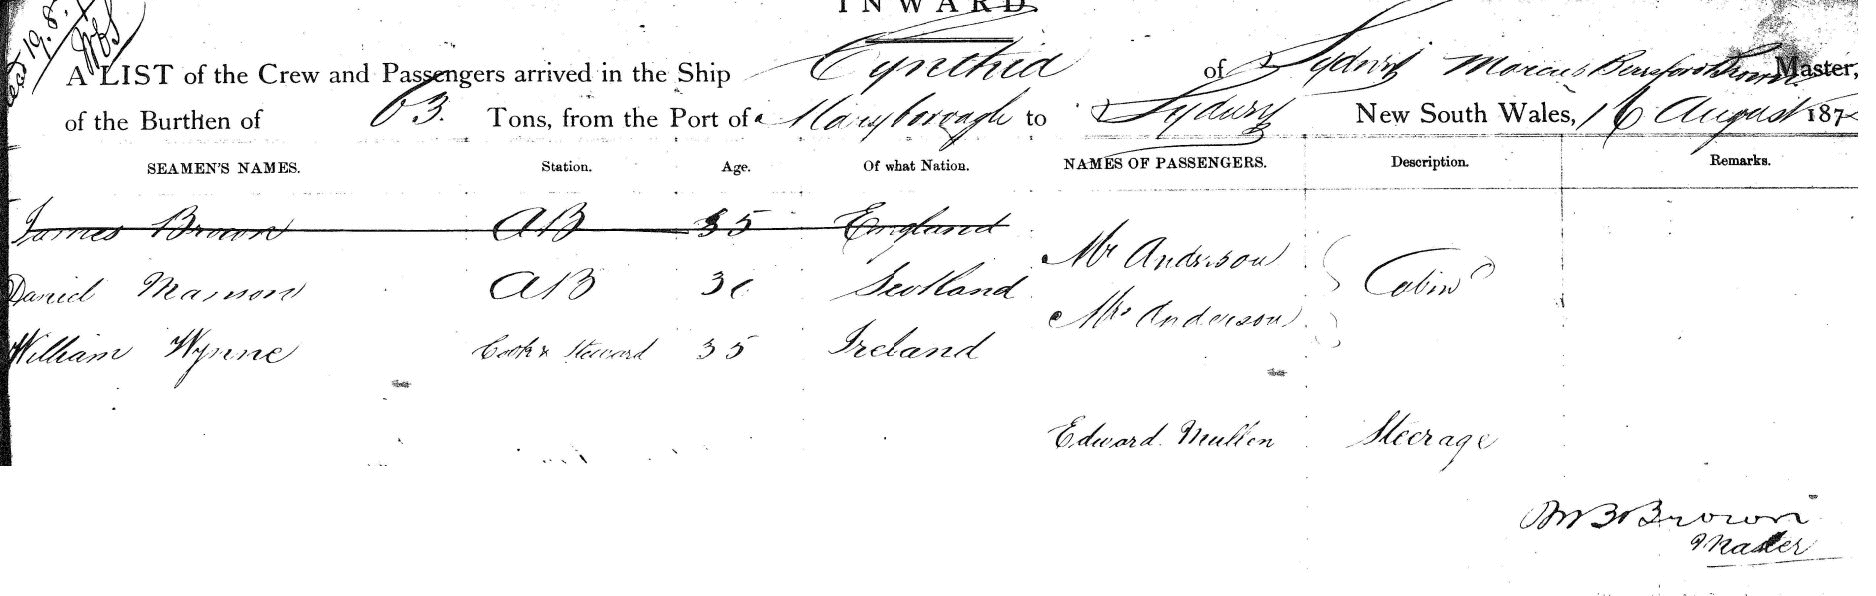 INWARD
A LIST of the Crew and Passengers arrived in the Ship Cynthia of Sydney Marcus Beresford Brown Master,
of the Burthen of 63. Tons, from the Port of Maryborough to Sydney New South Wales, 16 August 187
SEAMEN'S NAMES. Station. Age. Of what Nation. NAMES OF PASSENGERS. Description. Remarks.
James Brown AB 35 England
Mr Anderson
Daniel AB Scotland Cabin
Mrs Anderson
William Wynne Cook & Steward 35 Ireland
Edward Mullen Steerage
M B Brown
Master